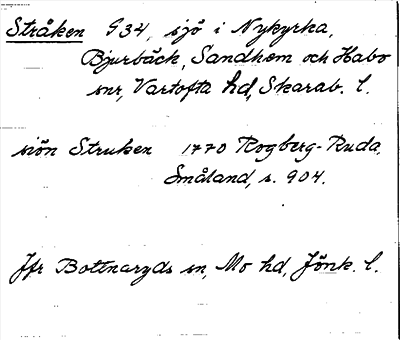 Stråken G34, sjö i Nykyrka,
Bjurbäck, Sandhem och Habo
snr, Vartofta hd, Skarab. l.
siön Struken 1770 Rogberg-Ruda,
Småland, s. 904.
Jfr Bottnaryds sn, Mo hd, Jönk. l.